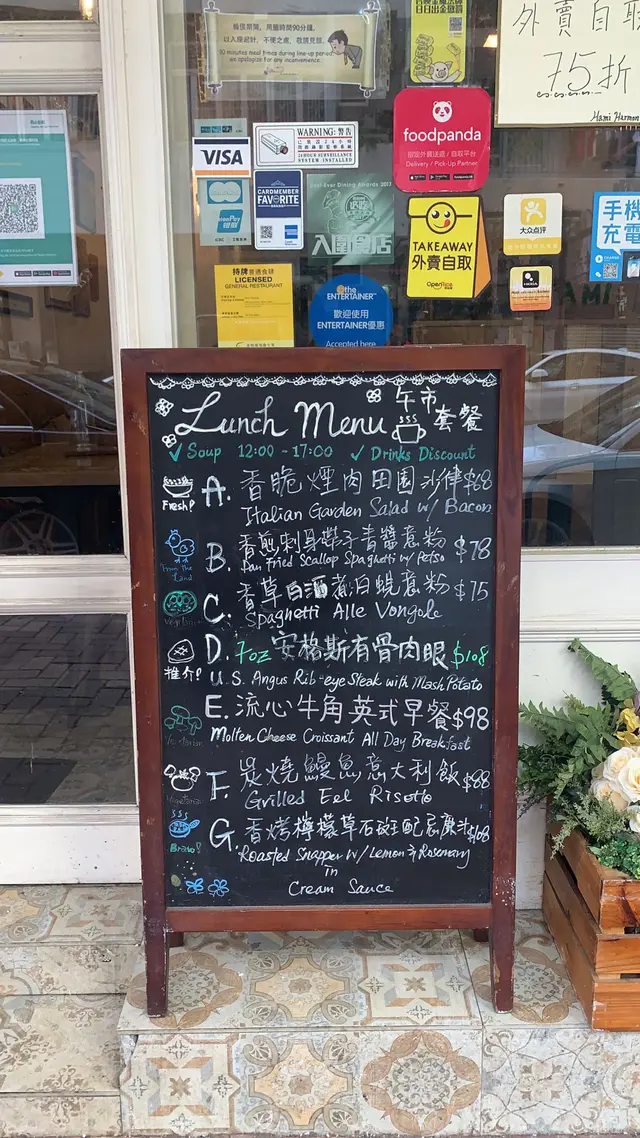 梅侯期間，用膳時間90分鐘。
90 minutes meal times during line-up period
we apologize for any inconvenience.
外賣自取
75折
Hami Harmon
VISA
WARNING: 警告
24 HOUR SURVEILLANCE
SYSTEM INSTALLED
foodpanda
Delivery / Pick-Up Partner
CARDMEMBER
FAVORITE
2017
入圍食店
TAKEAWAY
外賣自取
OpenRice
大众点评
手機
充電
持牌普通食肆
LICENSED
GENERAL RESTAURANT
the
ENTERTAINER
歡迎使用
ENTERTAINER優惠
Accepted here
Lunch Menu 午市
套餐
✓ Soup 12:00 - 17:00 ✓ Drinks Discount
Fresh!
A. 香脆煙肉田園沙律 $68
Italian Garden Salad w/ Bacon
From the
Land
B. 香煎刺身帶子青醬意粉 $78
Pan Fried Scallop Spaghetti w/ Petso
C. 香草白酒煮白蜆意粉 $75
Spaghetti Alle Vongole
推介!
D. 7oz 安格斯有骨肉眼 $108
U.S. Angus Rib-eye Steak with Mash Potato
E. 流心牛角英式早餐 $98
Molten Cheese Croissant All Day Breakfast
F. 炭燒鰻魚意大利飯 $88
Grilled Eel Risoto
Bravo!
G. 香烤檸檬草石斑配忌廉汁 $108
Roasted Snapper w/ Lemon & Rosemary
in
Cream Sauce